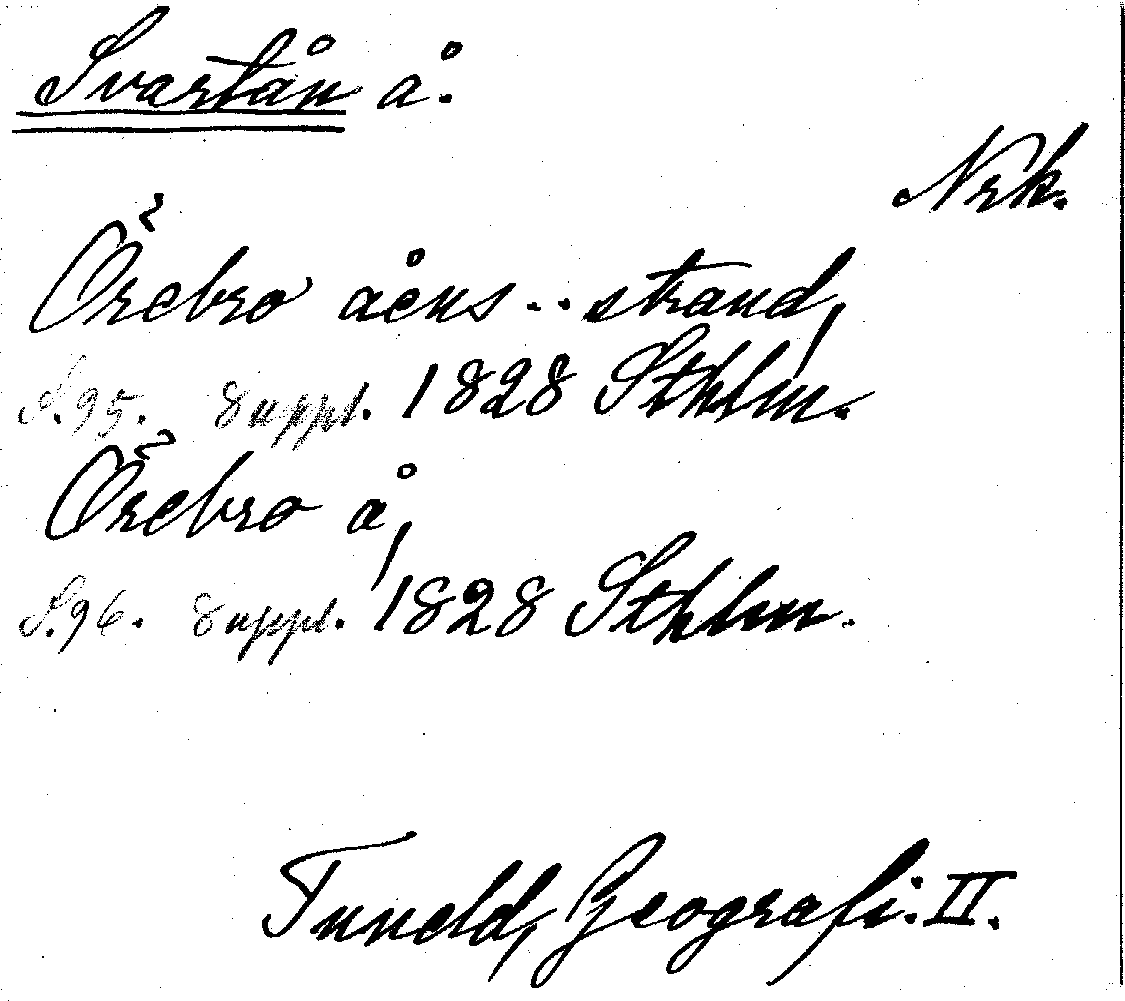 Svartån å.
Nrk.
Örebro åens .. strand,
S. 95. Suppl. 1828 Sthlm.
Örebro å,
S. 96. Suppl. 1828 Sthlm.
Tuneld, Geografi. II.